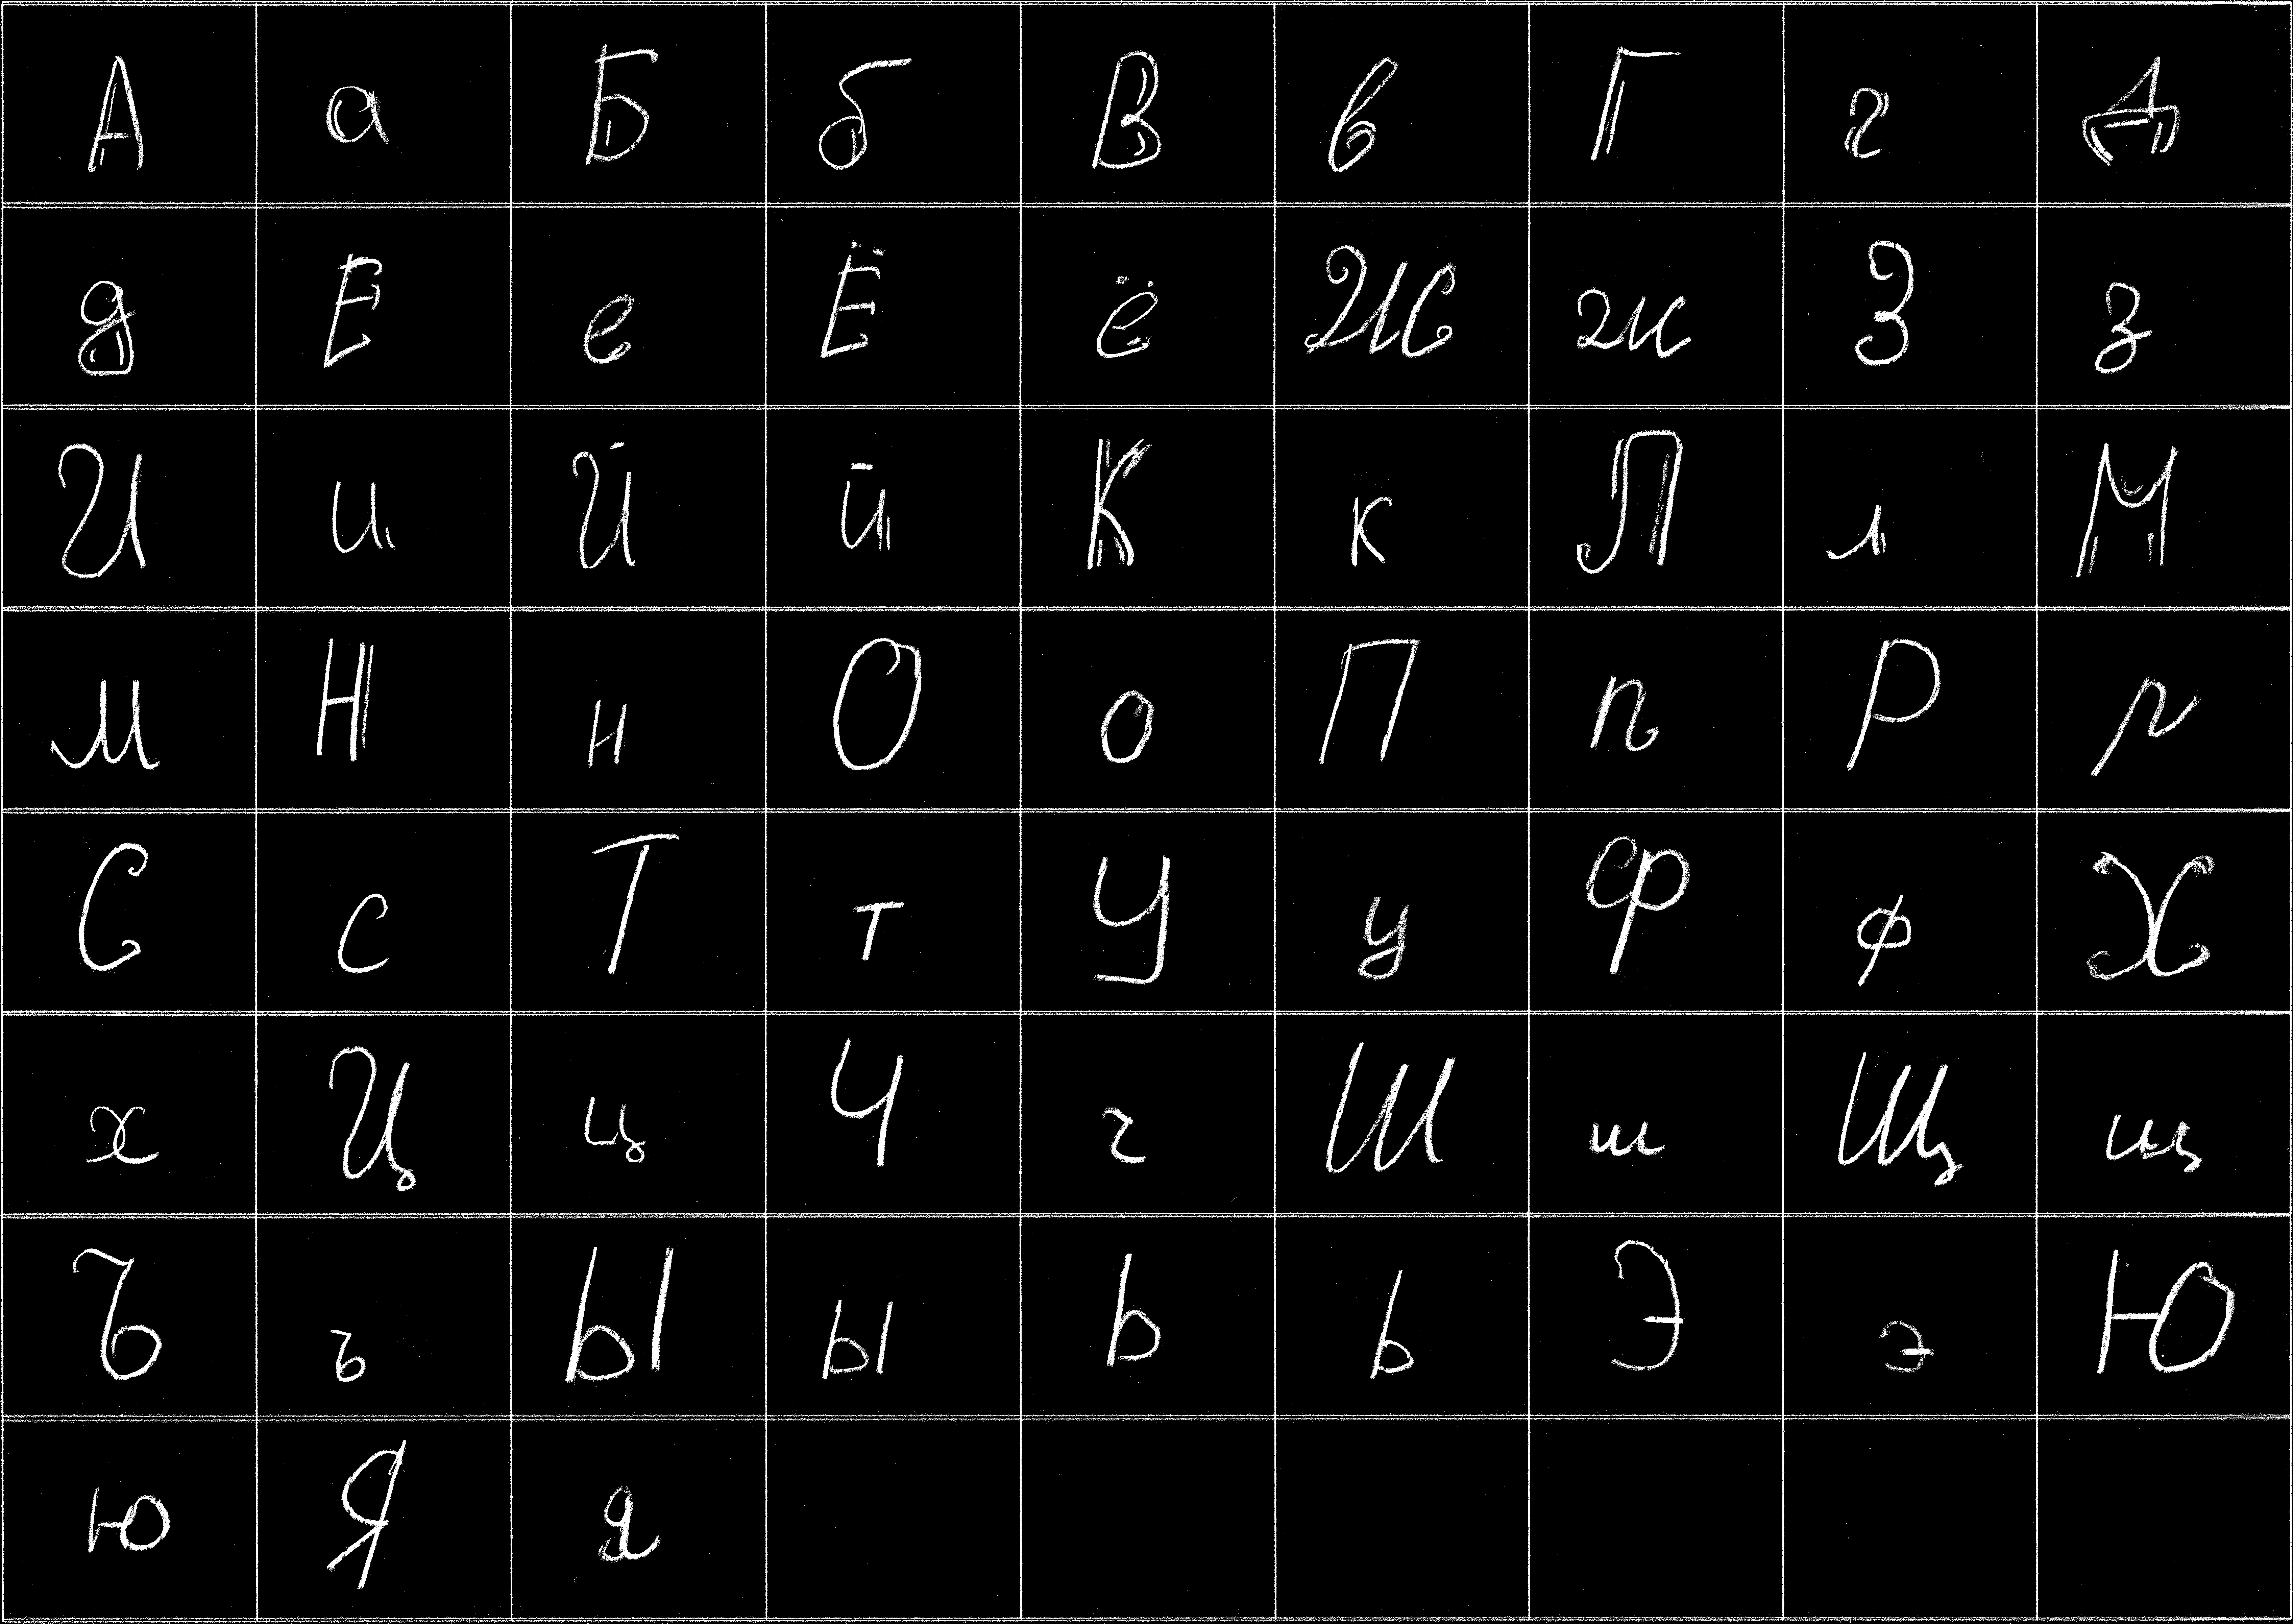 А а Б б В в Г г Д
д Е е Ё ё Ж ж З з
И и Й й К к Л л М
м Н н О о П п Р р
С с Т т У у Ф ф Х
х Ц ц Ч ч Ш ш Щ щ
Ъ ъ Ы ы Ь ь Э э Ю
ю Я я